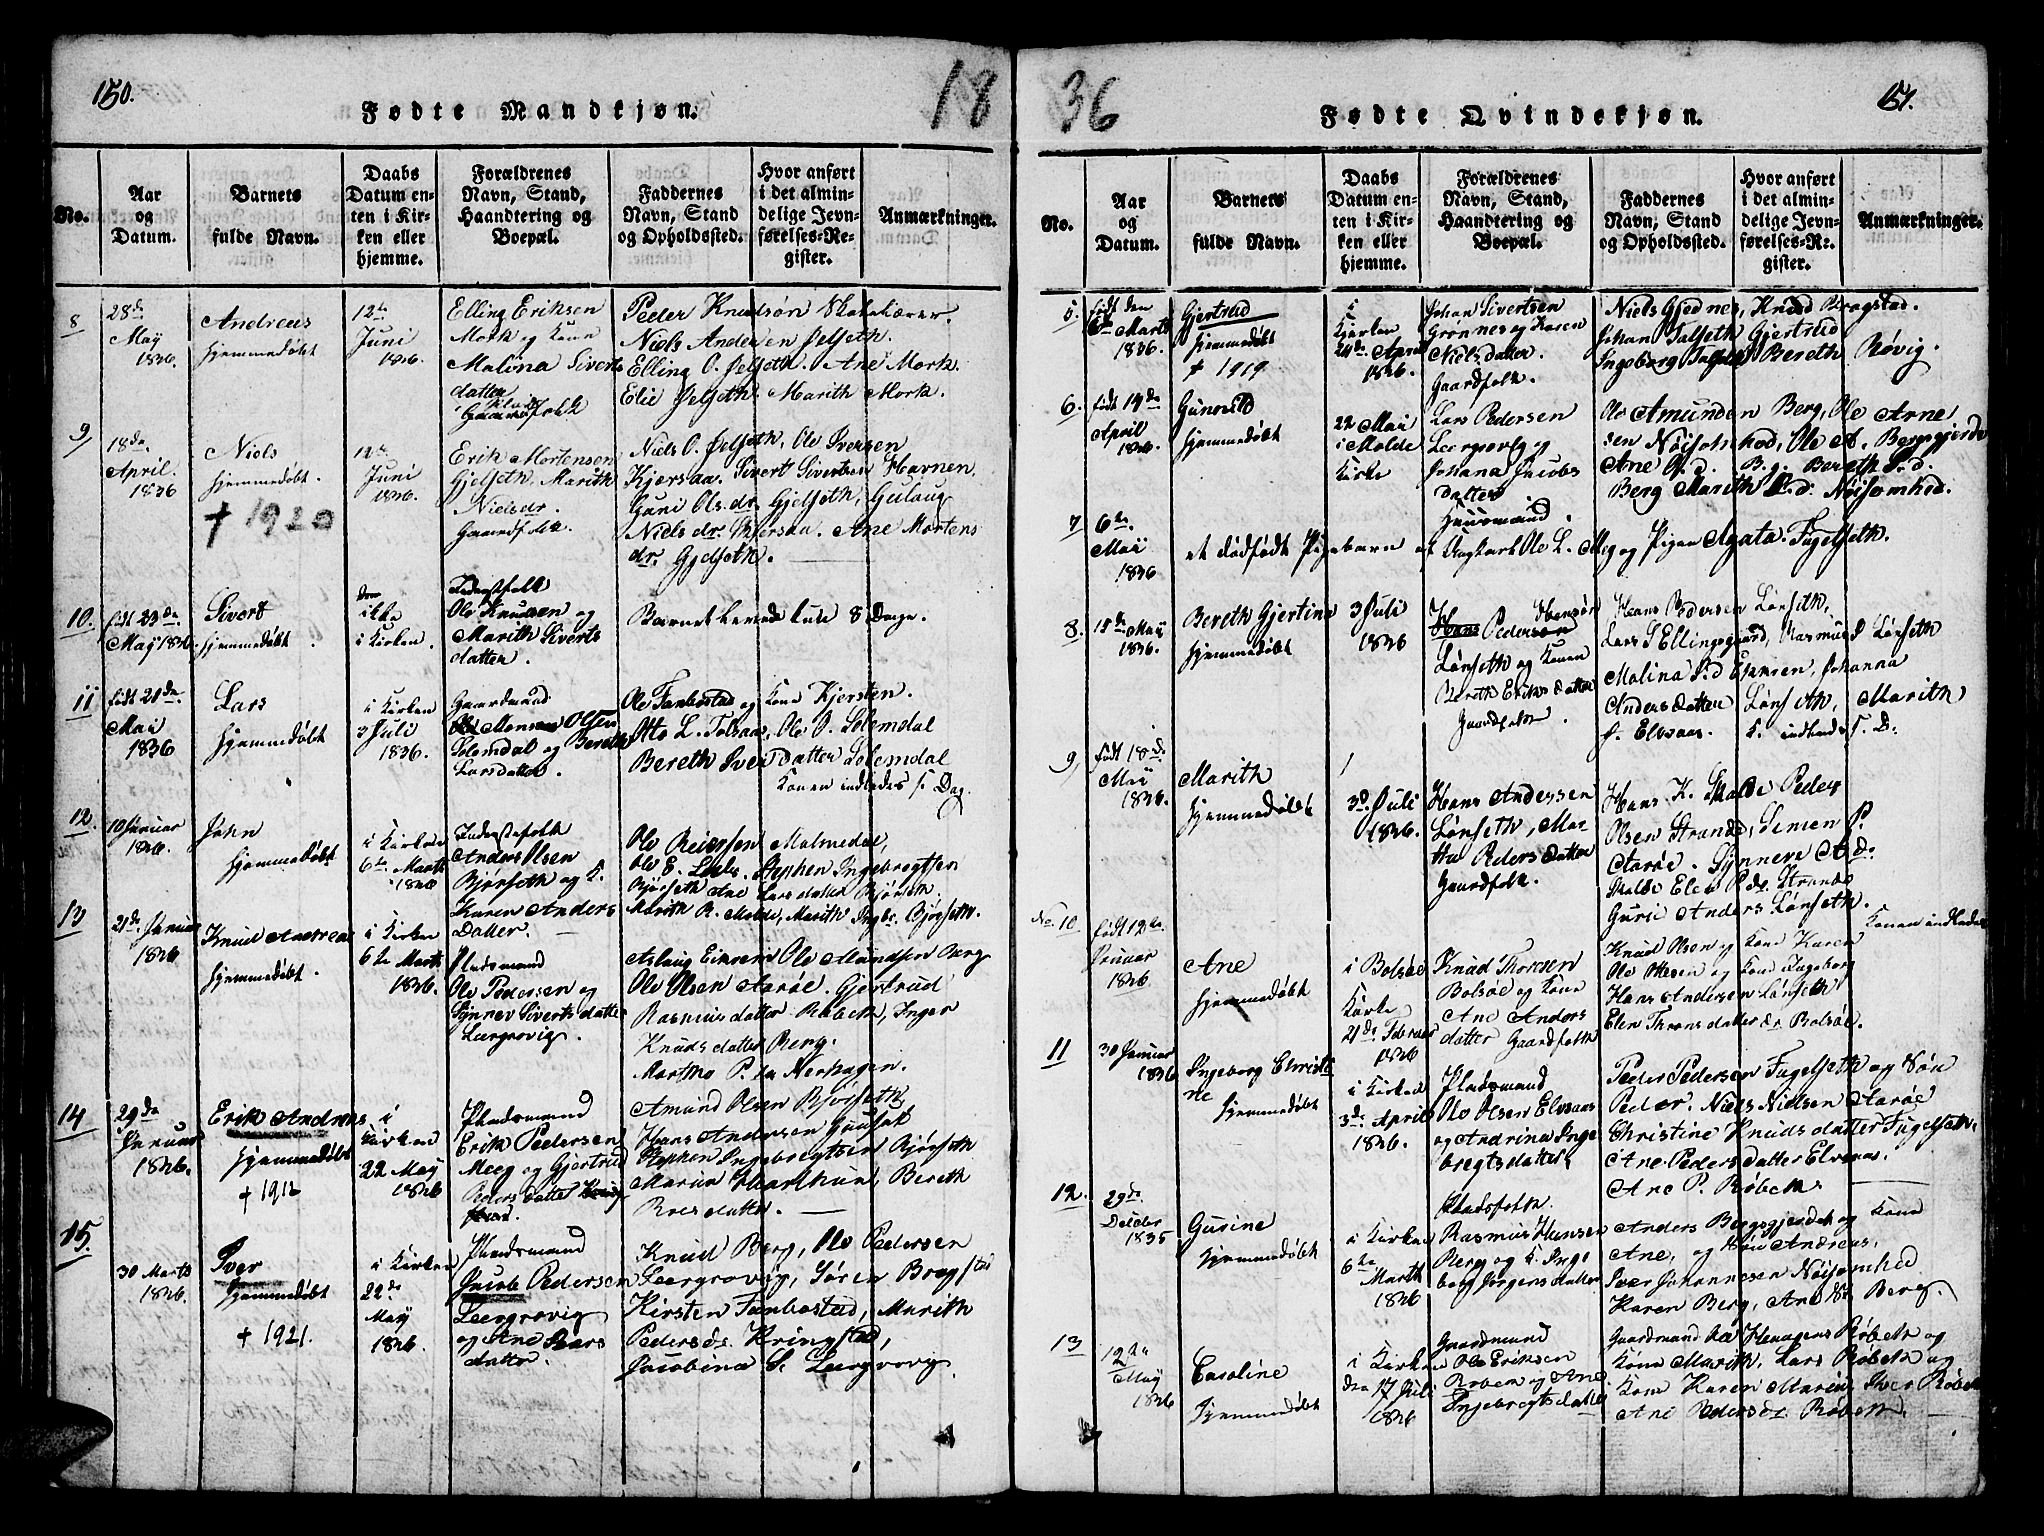 150.
Fødte Mandkjøn.
18
No.
Aar
og
Datum.
Barnets
fulde Navn.
Daabs
Datum en-
ten i Kir-
ken eller
hjemme.
Forældrenes
Navn, Stand,
Haandtering og
Boepæl.
Faddernes
Navn, Stand
og Opholdssted.
Hvor anført
i det almin-
delige Jevn-
førelses-Re-
gister.
Anmærkninger.
8
28de
May
1836.
Andreas
hjemmedøbt
12te
Juni
1836.
Elling Eriksen
Mork og Kone
Malina Siverts
datter
Gaardfolk
Peder Knudsøn
Niels Andersen Jelseth.
Elling O. Jelseth. Ane Mork.
Elie Jelseth. Marith Mork.
9
18de
April.
1836
Niels
hjemmedøbt.
† 1920
12te
Juni
1836.
Erik Mortensen
Gjelseth. Marith
Nielsdr.
Gaardfolk.
Niels O. Jelseth, Ole Iversen
Kjersaa. Sivert Sivertsen Havnen.
Guri Ols.dr. Gjelseth, Gulaug
Niels dr. Kjersaa. Ane Mortens
dr. Gjelseth.
10.
født 23de
May 1836.
Sivert
hjemmedøbt
ikke
i Kirken.
Inderstfolk
Ole Knudsen og
Marith Siverts
datter.
Barnet levede kun 8 Dage.
11
født 21de
Mai
1836
Lars
hjemmedøbt
i Kirken
3 Juli
1836.
Gaardmand
Monsen Olsen
Solemdal og Bereth
Larsdatter.
Ole Fanbostad og Kone Kjersten.
Otto L. Tolsaas, Ole O. Solemdal
Bereth Iversdatter Solemdal
Konen indledes s. Dag.
12.
10 Januar
1836.
John
hjemmedøbt
i Kirken
6te Marth
1836
Inderstefolk
Anders Olsen
Bjørseth og K.
Karen Anders
Datter.
Ole Reiersen Malmedal,
Ole E. Stephen Ingebregtsen
Bjørseth Ane Larsdatter Bjørseth.
Marith R. Molde, Marith Ingbr. Bjørseth.
13
21de Januar
1836
Knud Andreas
hjemmedøbt.
i Kirken
6te Marth
1836.
Pladsmand
Ole Pedersen og
Synnev Siverts datter
Leergrovig.
Aslaug Ole Amundsen Berg
Ole Olsen Aarøe. Gjertrud
Rasmus datter Røbek, Inger
Knuds datter Berg.
Martha P. da Nerhagen.
14
29de
Januar
1836.
Erik Andreas
hjemmedøbt
† 1912
i
Kirken
22 May
1836
Pladsmand
Erik Pedersen
Meeg og Gjertrud
Peders datter
Amund Olsen Bjørseth,
Hans Andersen
Stephen Ingebregtsen Bjørseth
Maria Bereth
Roes datter.
15.
30 Marts
1836.
Iver
hjemmedøbt
† 1921.
i Kirken
22de
May
1836.
Pladsmand
Jacob Pedersen
Leergrovig
og Ane Lars
datter.
Knud Berg, Ole Pedersen
Leergrovig, Søren Bragstad
Kirsten Fanbostad, Marith
Pedersdr. Kringstad,
Jacobina S. Leergrovig.
36
151.
Fødte Qvindekjøn.
No.
Aar
og
Datum.
Barnets
fulde Navn.
Daabs
Datum en-
ten i Kir-
ken eller
hjemme.
Forældrenes
Navn, Stand,
Haandtering og
Boepæl.
Faddernes
Navn, Stand
og Opholdssted.
Hvor anført
i det almin-
delige Jevn-
førelses-Re-
gister.
Anmærkninger.
5.
født den
6te Marts
1836.
Gjertrud
hjemmedøbt
† 1919.
i
Kirken
24de April
1836.
Johan Sivertsen
Grønnes og Karen
Nielsdatter.
Gaardfolk.
Niels Gjednes, Knud Bragstad.
Johan Talseth Gjertrud
Ingeborg Talseth Bereth Røvig.
6.
født 14de
April
1836.
Gunnild
hjemmedøbt
22 Mai
i Molde
Kirke
Lars Pedersen
Leergrovig og
Johana Jacobs
datter
Huusmand.
Ole Amunden Berg, Ole Arne
sen Nøisomhed, Ole A. Bergsgjerde
Ane O.d. Bereth P.d.
Berg Marith P.d. Nøisomhed.
7
6te
Mai
1836
et dødfødt Pigebarn af Ungkarl Ole L. Meg og Pigen Agata Fugelseth.
8.
15de May
1836.
Bereth Gjertina
hjemmedøbt
3 Juli
1836
Hans Hansøn
Pedersøn
Lønseth og Konen
Bereth Eriks datter
Gaardfolk.
Hans Pedersen Lønseth,
Lars S Ellingsgaard, Rasmus P Lønseth
Malina P.d. Johanna
Anders datter Lønseth, Marith
J. Elvsaas. K. indledes s. D.
9,
født 18de
Mai
1836.
Marith
hjemmedøbt
3d. Juli
1836.
Hans Andersen
Lønseth, Mar
tha Peders datter
Gaardfolk.
Hans K. Skalde Peder
Olsen Strande, Simen P.
Aarøe. Synneve A.d.
Skalde Elen P. dr. Strande
Guri Anders Lønseth.
Konen indledes
No. 10
født 12te
Januar
1836.
Ane
hjemmedøbt
i Bolsøe
Kirke
21de Februar
1836
Knud Thorsen
Bolsøe og Kone
Ane Anders
datter Gaardfolk
Knud Olsen og Kone Karen
Ole Ottesen og Kone Ingeborg
Hans Andersen Lønseth
Elen Thorsdatter dr. Bolsøe.
11
30 Januar
1836
Ingeborg Christi
ne
hjemmedøbt
i Kirken
3de April
1836.
Pladsmand
Ole Olsen Elvsaas
og Andrina Inge
bregtsdatter.
Peder Pedersen Fugelseth og Søn
Peder. Niels Nielsen Aarøe
Christine Knuds datter Fugelseth.
Ane Peders datter Elvsaas.
Ane P. Røbek.
12.
29de
Decbr
1835
Gurine
hjemmedøbt
i Kirken
6te
Marth
1836
Pladsfolk.
Rasmus Hansen
Berg og K. Inge
borg Jørgens datter
Anders Bergsgjerdet og Kone
Ane, og Søn Andreas.
Peer Johannesen Nøisomhed
Karen Berg, Ane Berg.
13
12te
May
1836
Caroline
hjemmedøbt
i Kirken
den
17 Juli
1836
Gaardmand
Ole Eriksen
Røbek og Ane
Ingebregtsdatter
Gaardmand Røbek og
Kone Marith, Lars Røbek og
Kone Karen Maria, Iver Røbek
Ane Pedersdr. Røbek.